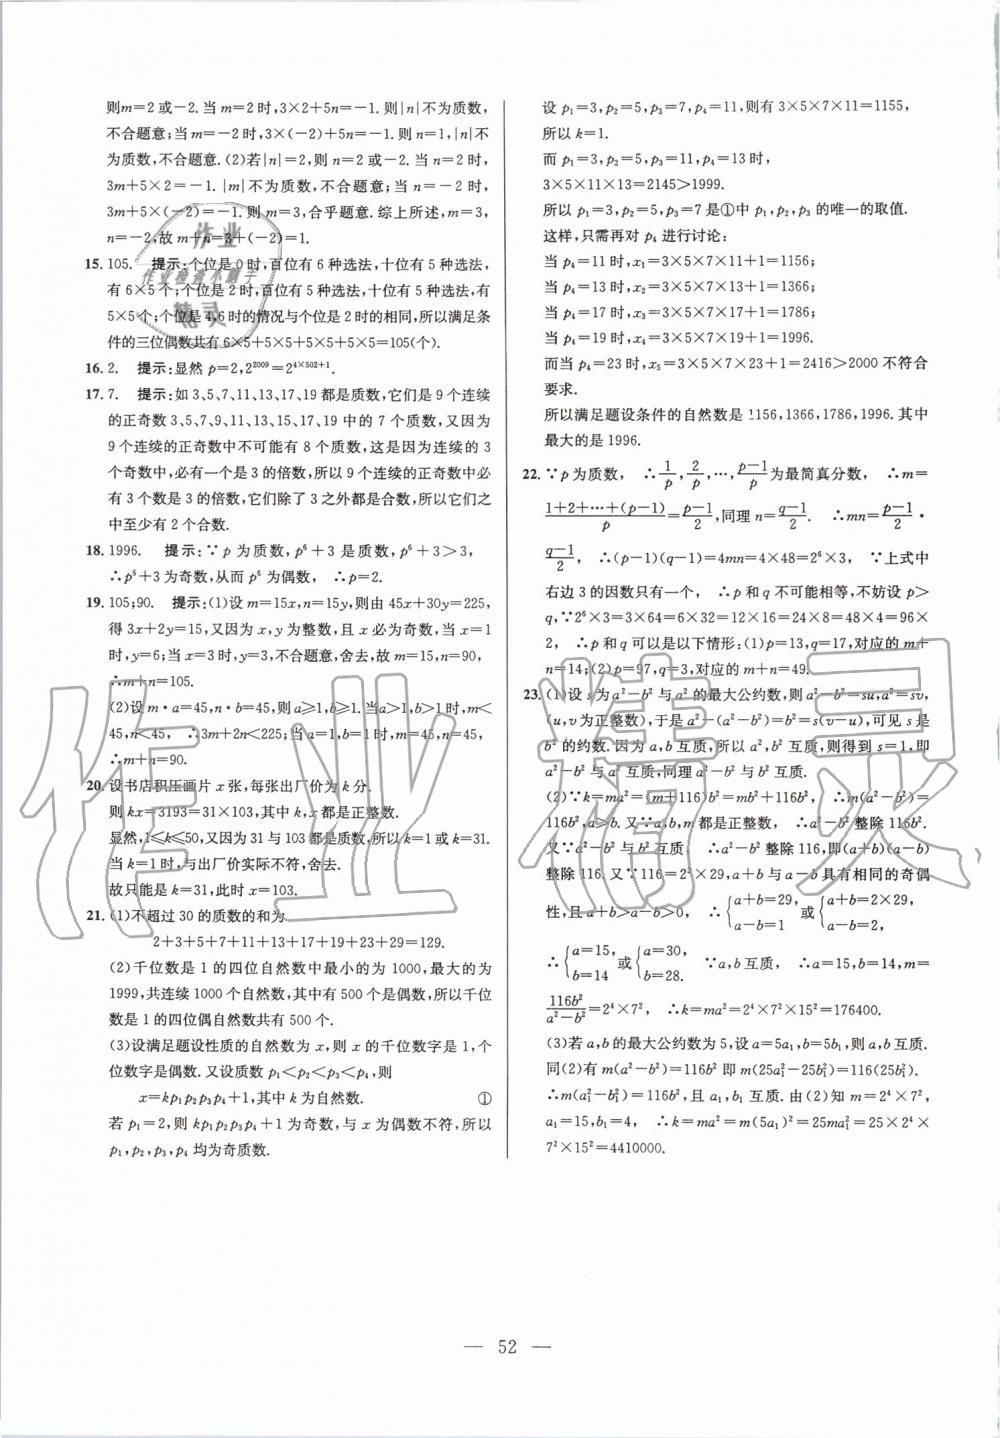 则m=2 或-2. 当 m=2 时,3×2+5n=-1. 则|n|不为质数,
不合题意;当 m=-2 时,3×(-2)+5n=-1. 则 n=1,|n|不
为质数,不合题意. (2)若|n|=2,则 n=2 或-2. 当 n=2 时,
3m+5×2=-1. |m|不为质数,不合题意;当 n=-2 时,
3m+5×(-2)=-1. 则 m=3,合乎题意. 综上所述,m=3,
n=-2,故 m+n=3+(-2)=1.
15. 105. 提示:个位是 0 时,百位有 6 种选法,十位有 5 种选法,
有 6×5 个;个位是 2 时,百位有 5 种选法,十位有 5 种选法,有
5×5 个;个位是 4,6 时的情况与个位是 2 时的相同,所以满足条
件的三位偶数共有 6×5+5×5+5×5+5×5=105(个).
16. 2. 提示:显然 p=2,2²⁰⁰⁹=2⁴ˣ⁵⁰²⁺¹.
17. 7. 提示:如 3、5、7、11、13、17、19 都是质数,它们是 9 个连续
的正奇数 3、5、7、9、11、13、15、17、19 中的 7 个质数,又因为
9 个连续的正奇数中不可能有 8 个质数,这是因为连续的 3
个奇数中,必有一个是 3 的倍数,所以 9 个连续的正奇数必
有 3 个 3 的倍数,它们除了 3 之外都是合数,所以它们之
中至少有 2 个合数.
18. 1996. 提示:∵p 为质数,p⁶+3 是质数,p⁶+3>3,
∴p⁶+3 为奇数,从而 p⁶ 为偶数,∴p=2.
19. 105;90. 提示:(1)设 m=15x,n=15y,则由 45x+30y=225,
得 3x+2y=15,又因为 x,y 为整数,且 x 必为奇数,当 x=1
时,y=6;当 x=3 时,不合题意,舍去,故 m=15,n=90,
∴m+n=105.
(2)设 m·a=45,n·b=45,则a≥1,b≥1. 当a>1,b>1时,m<
45,n<45,∴3m+2n<225;当 a=1,b=1 时,m=45,n=45,
∴m+n=90.
20. 设书店积压画片 x 张,每张出厂价为 k 分.
则 kx=3193=31×103,其中 k,x 都是正整数.
显然,1≤k≤50,又因为 31 与 103 都是质数,所以 k=1 或 k=31.
当 k=1 时,与出厂价实际不符,舍去.
故只能是 k=31,此时 x=103.
21. (1)不超过 30 的质数的和为
2+3+5+7+11+13+17+19+23+29=129.
(2)千位数是 1 的四位自然数中最小的为 1000,最大的为
1999,共连续 1000 个自然数,其中有 500 个是偶数,所以千位
数是 1 的四位偶自然数共有 500 个.
(3)设满足题设性质的自然数为 x,则 x 的千位数字是 1,个
位数字是偶数. 又设质数 p₁<p₂<p₃<p₄,则
x=kp₁p₂p₃p₄+1,其中 k 为自然数. ①
若 p₁=2,则 kp₁p₂p₃p₄+1 为奇数,与 x 为偶数不符,所以
p₁,p₂,p₃,p₄ 均为奇质数.
设 p₁=3,p₂=5,p₃=7,p₄=11,则有 3×5×7×11=1155,
所以 k=1.
而 p₁=3,p₂=5,p₃=11,p₄=13 时,
3×5×11×13=2145>1999.
所以 p₁=3,p₂=5,p₃=7 是①中 p₁,p₂,p₃ 的唯一的取值.
这样,只需再对 p₄ 进行讨论:
当 p₄=11 时,x₁=3×5×7×11+1=1156;
当 p₄=13 时,x₂=3×5×7×13+1=1366;
当 p₄=17 时,x₃=3×5×7×17+1=1786;
当 p₄=19 时,x₄=3×5×7×19+1=1996.
而当 p₄=23 时,x₅=3×5×7×23+1=2416>2000 不符合
要求.
所以满足题设条件的自然数是 1156,1366,1786,1996. 其中
最大的是 1996.
22. ∵p 为质数, ∴1/p,2/p,…,(p-1)/p为最简真分数, ∴m=
(1+2+…+(p-1))/p=(p-1)/2,同理 n=(q-1)/2. ∴mn=(p-1)/2·
(q-1)/2, ∴(p-1)(q-1)=4mn=4×48=2⁶×3, ∵上式中
右边 3 的因数只有一个, ∴p 和 q 不可能相等,不妨设 p>
q,∵2⁶×3=3×64=6×32=12×16=24×8=48×4=96×
2, ∴p 和 q 可以是以下情形:(1)p=13,q=17,对应的 m+
n=14;(2)p=97,q=3,对应的 m+n=49.
23. (1)设 s 为 a²-b² 与 a² 的最大公约数,则 a²-b²=su,a²=sv,
(u,v 为正整数),于是 a²-(a²-b²)=b²=s(v-u),可见 s 是
b² 的约数. 因为 a,b 互质,所以 a²,b² 互质,则得到 s=1,即
a²-b² 与 a² 互质,同理 a²-b² 与 b² 互质.
(2)∵k=ma²=(m+116)b²=mb²+116b², ∴m(a²-b²)=
116b²,a>b. 又∵a,b,m 都是正整数, ∴a²-b² 整除 116b².
又∵a²-b² 与 b² 互质, ∴a²-b² 整除 116,即(a+b)(a-b)
整除 116. 又∵116=2²×29,a+b 与 a-b 具有相同的奇偶
性,且 a+b>a-b>0, ∴{a+b=29, 或{a+b=2×29,
a-b=1 a-b=2,
∴{a=15, 或{a=30, ∵a,b 互质, ∴a=15,b=14,m=
b=14 b=28.
116b²/(a²-b²)=2⁴×7², ∴k=ma²=2⁴×7²×15²=176400.
(3)若 a,b 的最大公约数为 5,设 a=5a₁,b=5b₁,则 a₁,b₁ 互质.
同(2)有 m(a²-b²)=116b²,即 m(25a₁²-25b₁²)=116(25b₁²).
∴m(a₁²-b₁²)=116b₁²,且 a₁,b₁ 互质. 由(2)知 m=2⁴×7²,
a₁=15,b₁=4, ∴k=ma²=m(5a₁)²=25ma₁²=25×2⁴×
7²×15²=4410000.
— 52 —
作业
作业检查小帮手
精灵
作业精灵